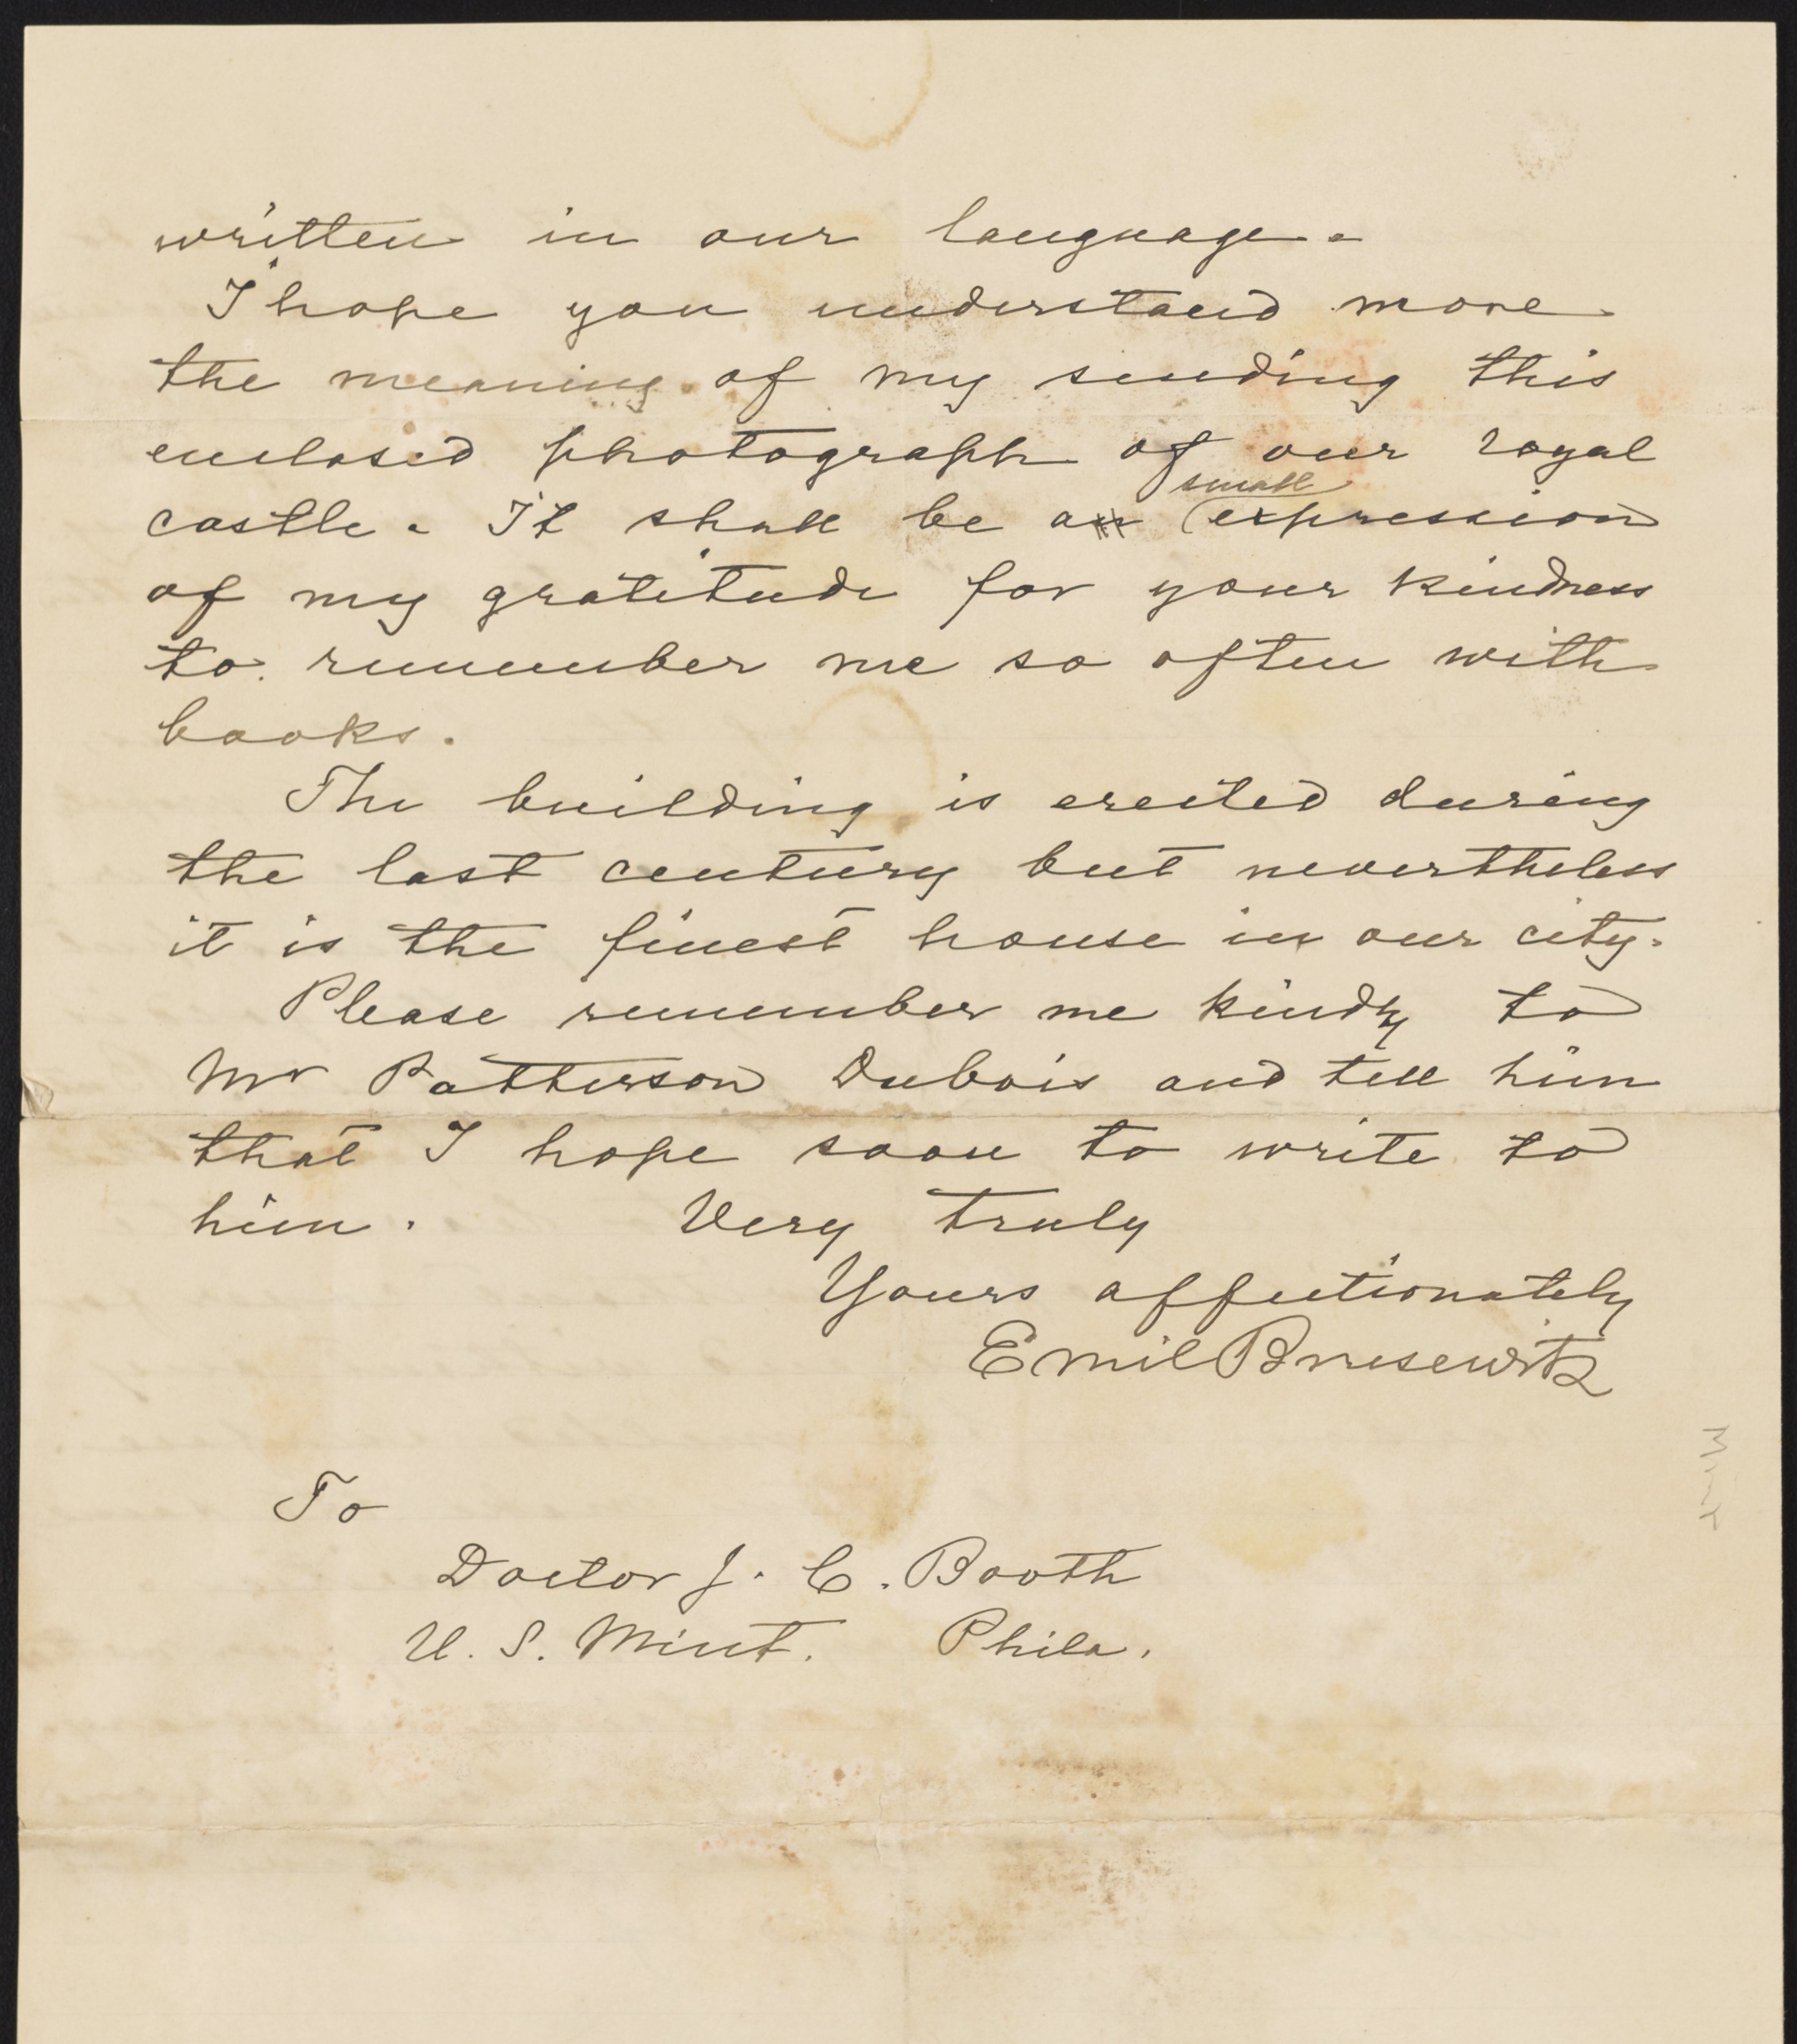 written in our language.
I hope you understand more
the meaning of my sending this
enclosed photograph of our royal
castle. It shall be a small expression
of my gratitude for your kindness
to remember me so often with
books.
The building is erected during
the last century but nevertheless
it is the finest house in our city.
Please remember me kindly to
Mr Patterson Dubois and tell him
that I hope soon to write to
him. Very truly
Yours affectionately
Emil Brusewitz
To
Doctor J. C. Booth
U. S. Mint. Phila.
Mint